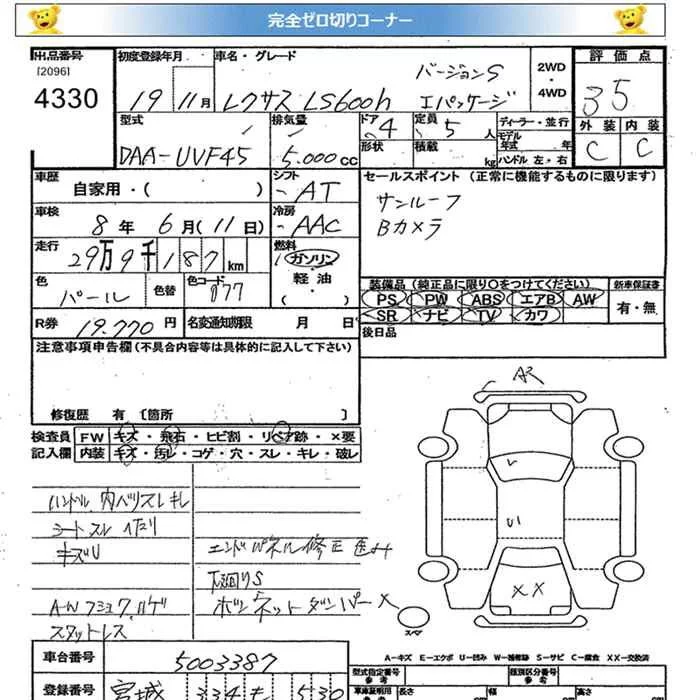 完全ゼロ切りコーナー
出品番号 初度登録年月 車名・グレード 評価点
[2096]
4330
19 11月 レクサス LS600h バージョンS Iパッケージ
2WD・4WD
35
外装 内装
C C
型式 排気量 ドア 定員 ディーラー・並行
DAA-UVF45 5.000cc 4 5人
モデル年式 年
形状 積載 kg ハンドル 左・右
車歴 自家用・( ) シフト AT
セールスポイント (正常に機能するものに限ります)
サンルーフ
Bカメラ
車検 8年 6月(11日) 冷房 AAC
走行 29万9千187km 燃料 ガソリン・軽油・( )
色 パール 色替 色コード 077
装備品 (純正品に限り○をつけてください) 新車保証書
PS PW ABS エアB AW
SR ナビ TV カワ
有・無
R券 19.770円 名変通知期限 月 日
後日品
注意事項申告欄 (不具合内容等は具体的に記入して下さい)
修復歴 有 〔箇所 〕
検査員記入欄 FW キズ・飛石・ヒビ割・リペア跡・×要
内装 キズ・汚レ・コゲ・穴・スレ・キレ・破レ
ハンドル 内バリスレキレ
シートスレ ヘタリ
キズU
エンドパネル修正済み
下廻りS
A-Wフショク、ハゲ
ボンネットダンパー×
スタットレス
A2
U1
XX
スペア
A―キズ E―エクボ U―凹み W―補修跡 S―サビ C―腐食 XX―交換済
車台番号 5003387
型式指定番号 参考 類別区分番号 参考
登録番号 宮城 334 5 30
車庫証明用 参考 長さ cm 幅 cm 高さ cm